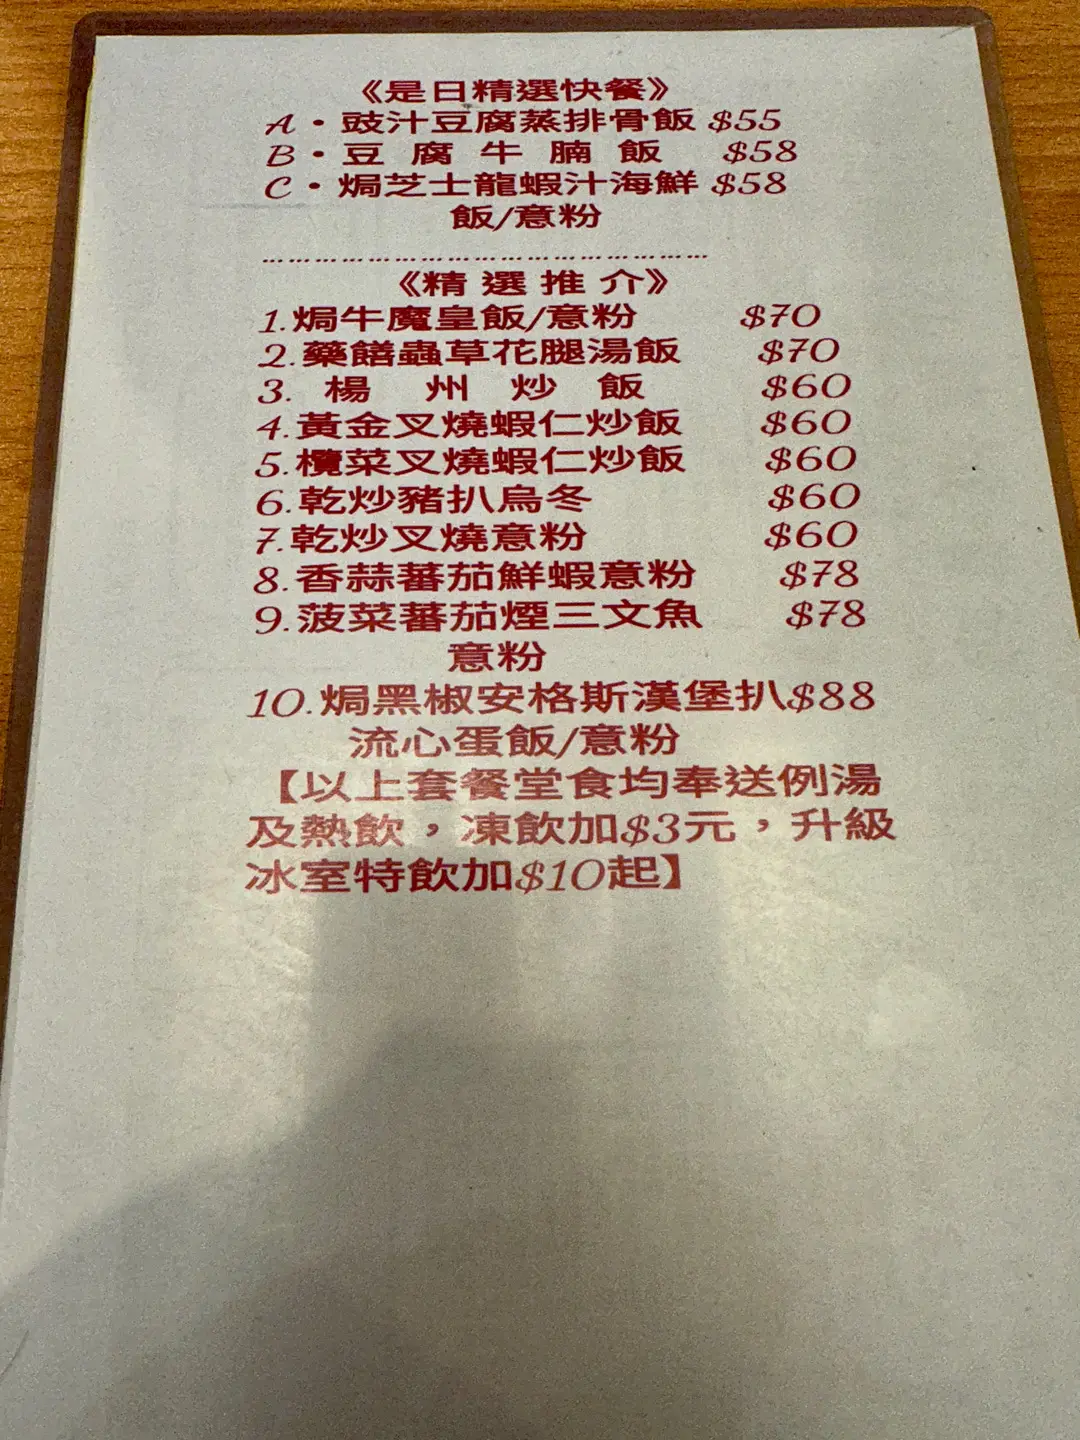 《是日精選快餐》
A·豉汁豆腐蒸排骨飯 $55
B·豆腐牛腩飯 $58
C·焗芝士龍蝦汁海鮮 $58
飯/意粉
《精選推介》
1.焗牛魔皇飯/意粉 $70
2.藥饍蟲草花腿湯飯 $70
3.楊州炒飯 $60
4.黃金叉燒蝦仁炒飯 $60
5.欖菜叉燒蝦仁炒飯 $60
6.乾炒豬扒烏冬 $60
7.乾炒叉燒意粉 $60
8.香蒜蕃茄鮮蝦意粉 $78
9.菠菜蕃茄煙三文魚 $78
意粉
10.焗黑椒安格斯漢堡扒$88
流心蛋飯/意粉
【以上套餐堂食均奉送例湯
及熱飲，凍飲加$3元，升級
冰室特飲加$10起】